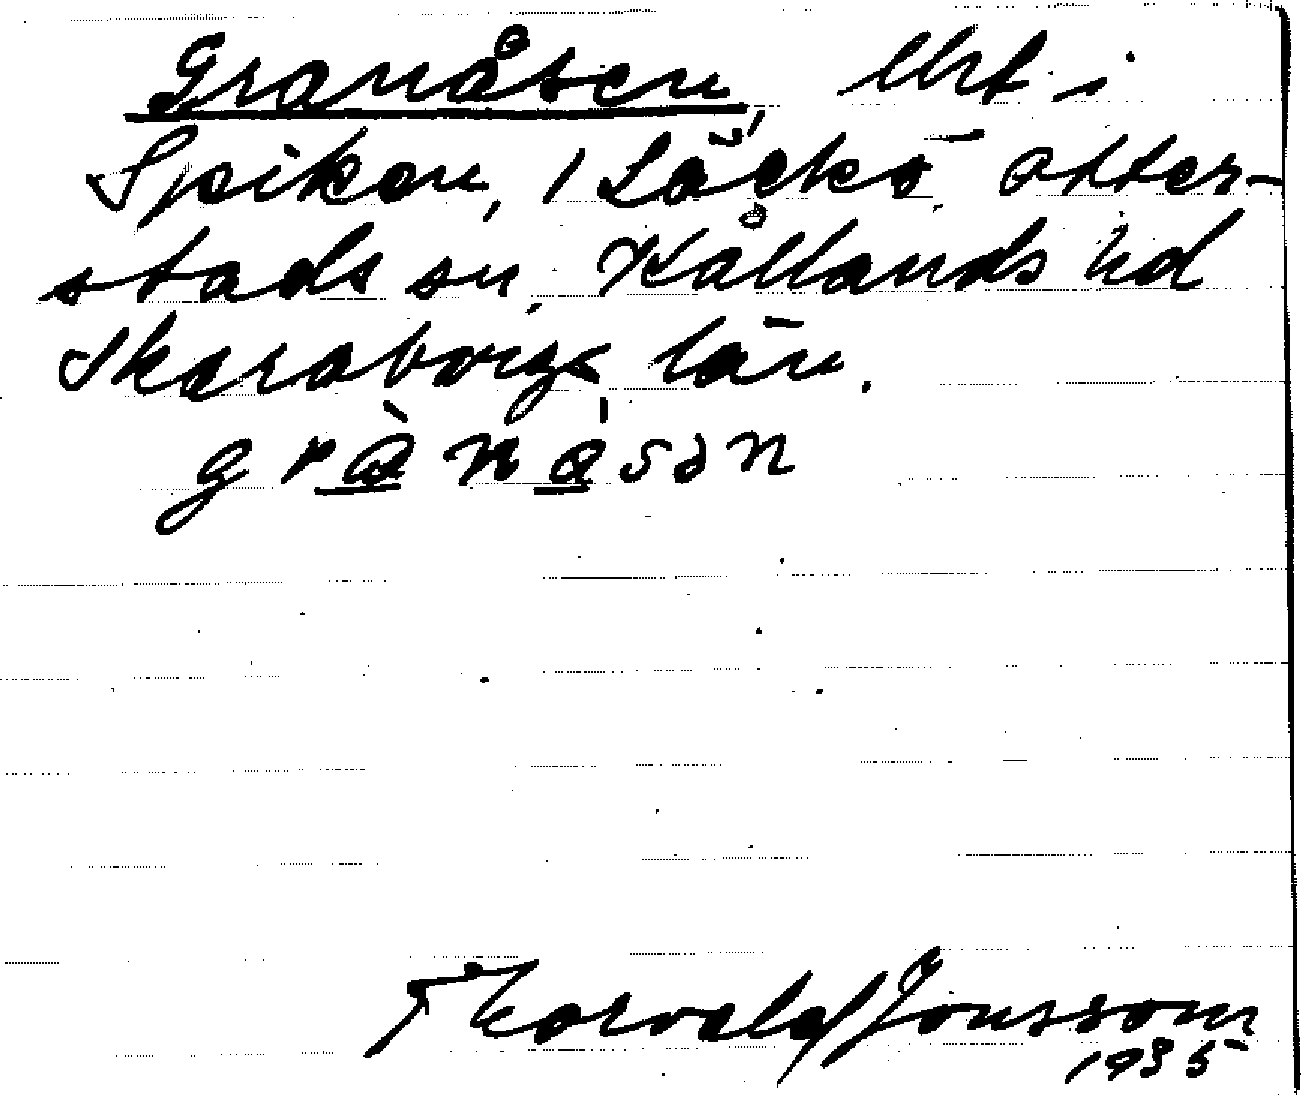 Granåsen, lht i
Spiken, 1 Läckö Otter-
stads sn, Kållands hd
Skaraborgs län.
gràn ɑ́sən
Thorvald Jonsson
1935